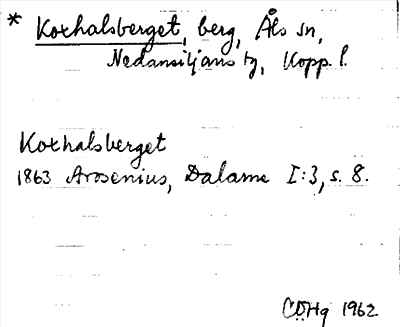 * Korhalsberget, berg, Åls sn,
Nedansiljans tg, Kopp. l.
Korhalsberget
1863 Arosenius, Dalarne I:3, s. 8.
CÖHg 1962